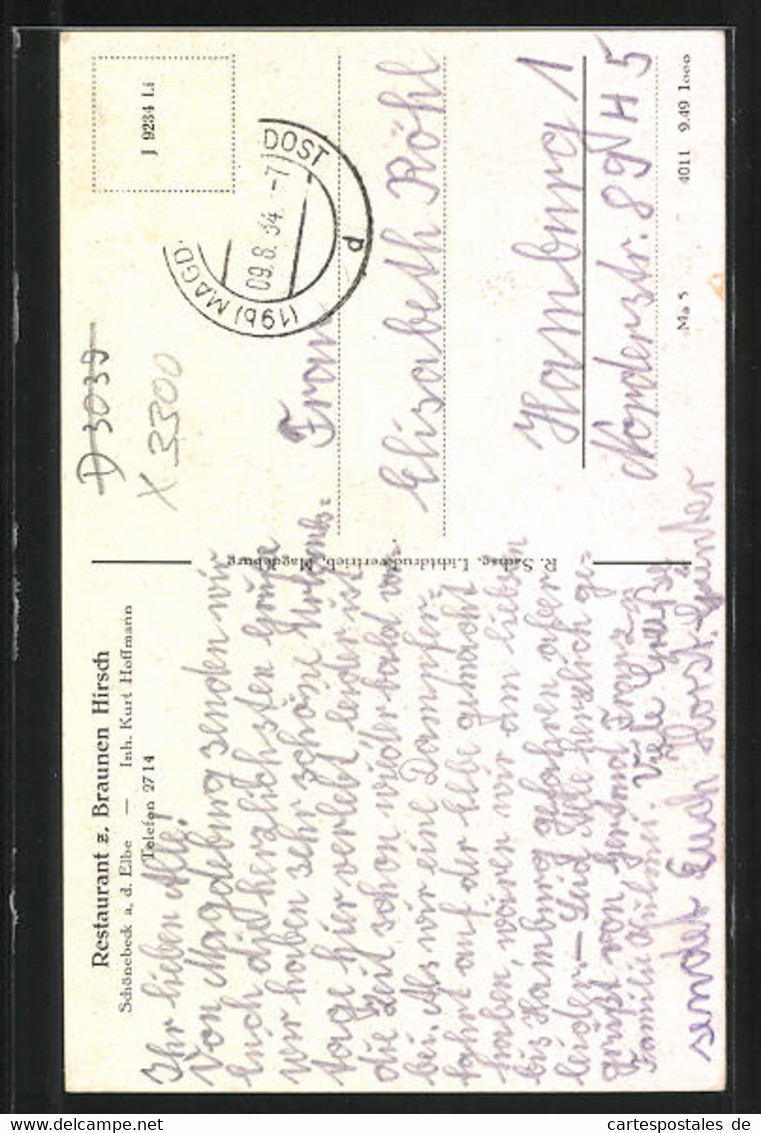 Restaurant z. Braunen Hirsch
Schönebeck a. d. Elbe — Inh. Kurt Hoffmann
Telefon 2714
Ihr lieben Alle!
Von Magdeburg senden wir
Euch die herzlichsten Grüße
wir haben sehr schöne Urlaubs=
tage hier verlebt leider ist
die Zeit schon wieder bald vor=
bei. Als wir eine Dampfer=
fahrt auf der Elbe gemacht
haben, wären wir am liebsten
bis Hamburg gefahren aber
leider — Seid Alle herzlich ge=
grüßt von Gertrud Franz
Familie Viele Grüße
sendet Euch Horst Günter
R. Sachse, Lichtdruckvertrieb, Magdeburg
J 9234 Li
(19b) MAGD DOST
09.8.54.-7
d
D 3039
X 3300
Frau
Elisabeth Röhl
Hamburg 1
Norderstr. 89 H 5
Ma 5 4011 9.49 1000
https://www.cartespostales.de
cartespostales de